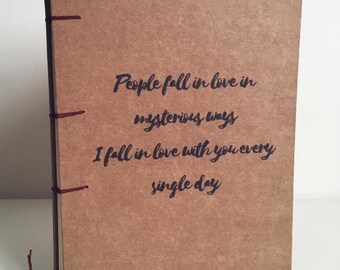 People fall in love in
mysterious ways
I fall in love with you every
single day